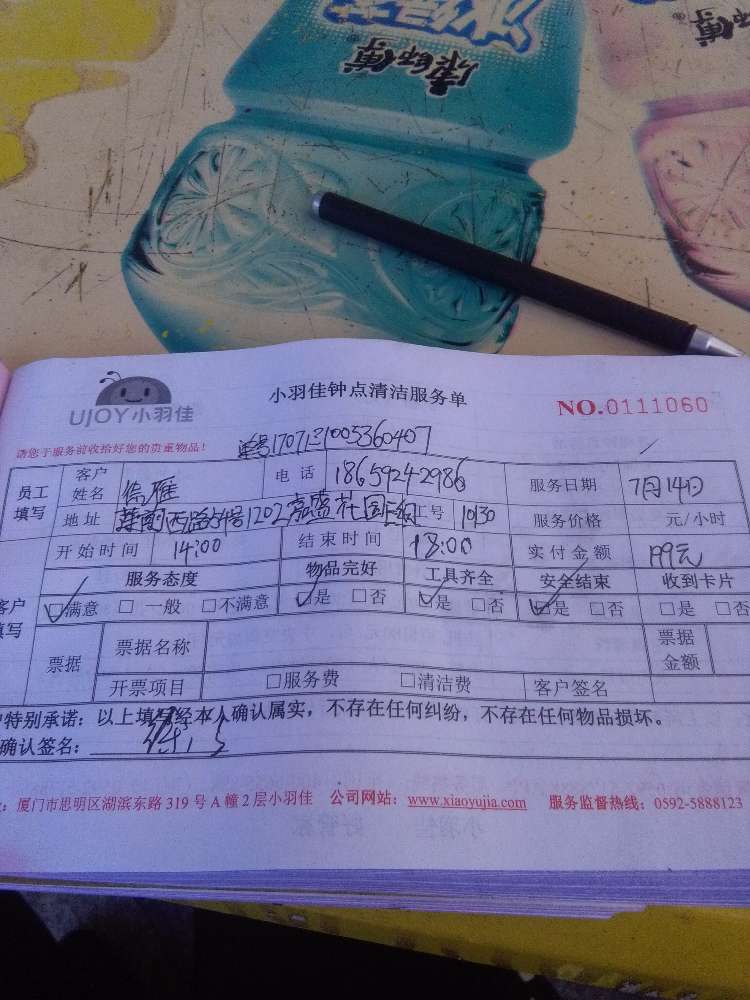 冰绿茶
康师傅®
康师傅®
UJOY小羽佳
小羽佳钟点清洁服务单
NO.0111060
请您于服务前收拾好您的贵重物品!
员工填写 客户姓名 电话 18659242986 服务日期 7月14日
地址 西路 号1202嘉盛花园 工号 10130 服务价格 元/小时
开始时间 14:00 结束时间 18:00 实付金额 199元
客户填写 服务态度 物品完好 工具齐全 安全结束 收到卡片
☑满意 □一般 □不满意 ☑是 □否 ☑是 □否 ☑是 □否 □是 □否
票据 票据名称 票据金额
开票项目 □服务费 □清洁费 客户签名
户特别承诺:以上填写经本人确认属实,不存在任何纠纷,不存在任何物品损坏。
确认签名:
:厦门市思明区湖滨东路319号A幢2层小羽佳 公司网站:www.xiaoyujia.com 服务监督热线:0592-5888123